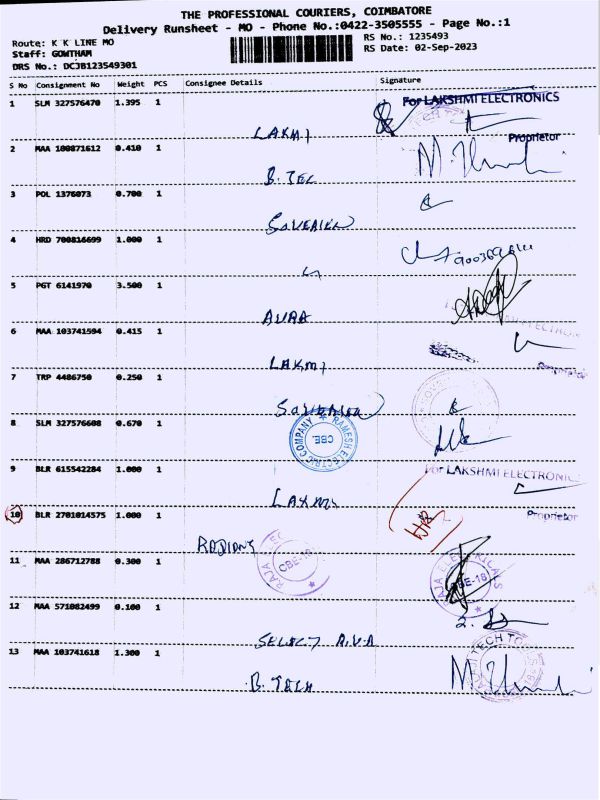 THE PROFESSIONAL COURIERS, COIMBATORE
Delivery Runsheet - MO - Phone No.:0422-3505555 - Page No.:1
Route: K K LINE MO
RS No.: 1235493
Staff: GOWTHAM
RS Date: 02-Sep-2023
DRS No.: DCJB123549301
S No Consignment No Weight PCS Consignee Details Signature
1 SLM 327576470 1.395 1
For LAKSHMI ELECTRONICS
LAKMI
Proprietor
2 MAA 100871612 0.410 1
B. TEC
3 POL 1376073 0.700 1
4 HRD 700816699 1.000 1
5 PGT 6141970 3.500 1
AURA
6 MAA 103741594 0.415 1
LAKMI
Proprietor
7 TRP 4486750 0.250 1
8 SLM 327576608 0.670 1
RAMESH ELECTRIC COMPANY
CBE.
9 BLR 615542284 1.000 1
For LAKSHMI ELECTRONICS
LAXMI
10 BLR 2701014575 1.000 1
Proprietor
RADIANT
11 MAA 286712788 0.300 1
RAJA ELE
CBE-18
RAJA ELECTRICALS
CBE-18
12 MAA 571082499 0.100 1
SELECT A.V.A
13 MAA 103741618 1.300 1
TECH TOO
B. TECH